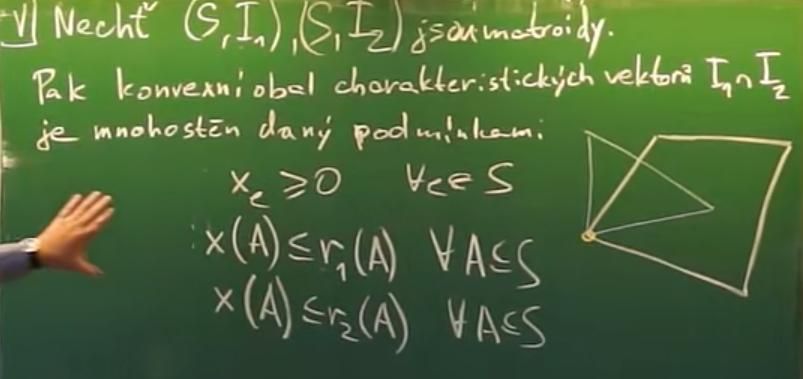 V| Nechť (S, I₁), (S, I₂) jsou matroidy.
Pak konvexní obal charakteristických vektorů I₁ ∩ I₂
je mnohostěn daný podmínkami:
xₑ ≥ 0 ∀e∈S
x(A) ≤ r₁(A) ∀A⊆S
x(A) ≤ r₂(A) ∀A⊆S